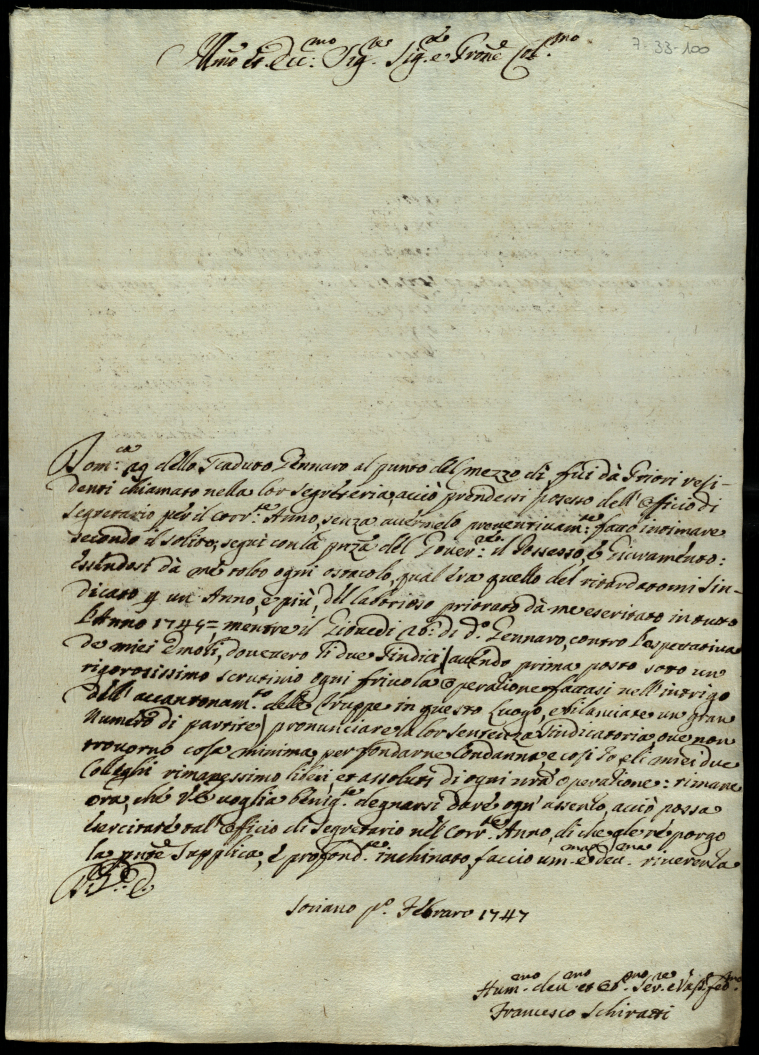 7-33-100
Ill.mo et Ecc.mo Sig.re Sig.re e Prone Col.mo
Dom.ca 29 dello scaduto Gennaro al punto del mezzo dì fui dà Priori resi-
denti chiamato nella lor segreteria, acciò prendessi possesso dell'Officio di
Segretario per il corr.te Anno, senza avermelo preventivam.te fatto intimare
secondo il solito; seguì con la pnza del Gover.re il Possesso, e Giuramento:
essendosi dà me tolto ogni ostacolo, qual'era quello del ritardatomi Sin-
dicato p un Anno, e più, del laborioso priorato dà me esercitato in tutto
l'Anno 1745= mentre il Giovedì 26: di d.o Gennaro, contro l'espettativa
de miei Emoli, dovettero li due Sindici / avendo prima posto sotto un
rigorosissimo scrutinio ogni frivola operatione fattasi nell'intrigo
dell'accantonam.to delle Truppe in questo Luogo, e bilanciate un gran
Numero di partite / pronunciare la lor sentenza Sindicatoria ove non
trovorno cosa minima per fondarne Condanna, e così Io, e li miei due
Colleghi rimanessimo liberi, et assoluti di ogni nrã operatione: rimane
ora, che V.E. voglia benig.te degnarsi dare ogn'assenso, acciò possa
esercitare tal'Officio di Segretario nel Corr.te Anno, di che gle ne porgo
la pnte Supplica, e profond.te inchinato faccio um.ma e dev.ma riverenza
D. V. E.
Soriano p.o Febraro 1747
Hum.mo dev.mo et ob.mo Ser.re e Vass.o fed.mo
Francesco Schiratti